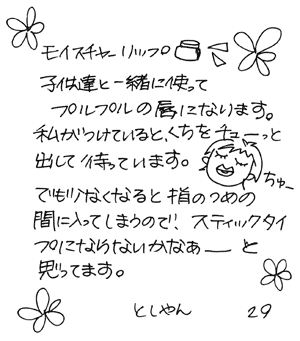 モイスチャーリップ
子供達と一緒に使って
プルプルの唇になります。
私がつけていると、くちをチューっと
出して待っています。
ちゅー
でも少なくなると指のつめの
間に入ってしまうので、スティックタイ
プにならないかなぁーと
思ってます。
としやん 29